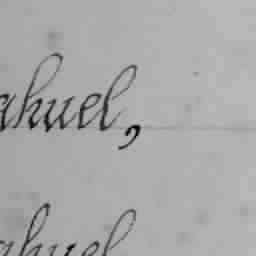 ahuel,
ahuel